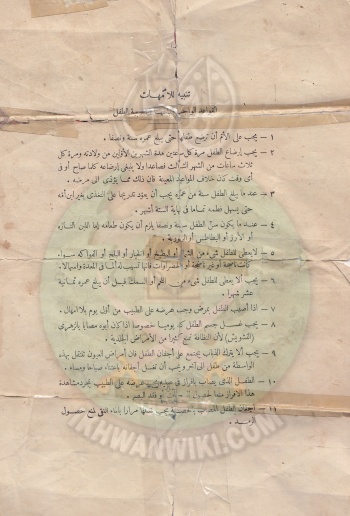 تنبيه للأمهات
القواعد الواجب الطفل
١ — يجب على الأم أن ترضع طفلها حتى يبلغ عمره سنة ونصفا .
٢ — يجب إرضاع الطفل مرة كل ساعتين مدة الشهرين الأولين من ولادته ومرة كل
ثلاث ساعات من الشهر الثالث فصاعدا ولا ينبغي إرضاعه كلما صاح أو في
أي وقت كان خلاف المواعيد المعينة فان ذلك مما يؤدى الى مرضه .
٣ — عند ما يبلغ الطفل سنة من عمره يجب أن يعود تدريجا على التغذى بغير لبن أمه
حتى يسهل فطمه تماما في نهاية الستة أشهر .
٤ — عند ما يكون سن الطفل سنة ونصفا يلزم أن يكون طعامه إما اللبن
أو الأرز أو البطاطس أو
٥ — لا يعطى للطفل شيء من أو البطيخ أو الخيار أو البلح أو الفواكه سواء
كانت ناضجة أو غير ناضجة أو الخضراوات فانها تسبب له ألما في المعدة واسهالا .
٦ — يجب ألا يعطى للطفل شيء من اللحم أو السمك قبل أن يبلغ عمره ثمانية
عشر شهرا .
٧ — اذا أصيب الطفل بمرض وجب عرضه على الطبيب من أول يوم بلا امهال .
٨ — يجب غسل جسم الطفل كله يوميا خصوصا اذا كان أبوه مصابا بالزهرى
(التشويش) لأن النظافة تمنع كثيرا من الأمراض الجلدية .
٩ — يجب ألا يترك الذباب يتجمع على أجفان الطفل فان أمراض العيون تنتقل بهذه
الواسطة من طفل الى آخر ويجب أن تغسل أجفانه باعتناء صباحا ومساء .
١٠ — الطفل الذى يصاب بافراز في عينيه يجب عرضه على الطبيب بمجرد مشاهدة
هذا الافراز منعا لحصول أو فقد البصر .
١١ — أجفان الطفل يجب غسلها مرارا بالماء النقى لمنع حصول
الرمد .
IKHWANWIKI.COM